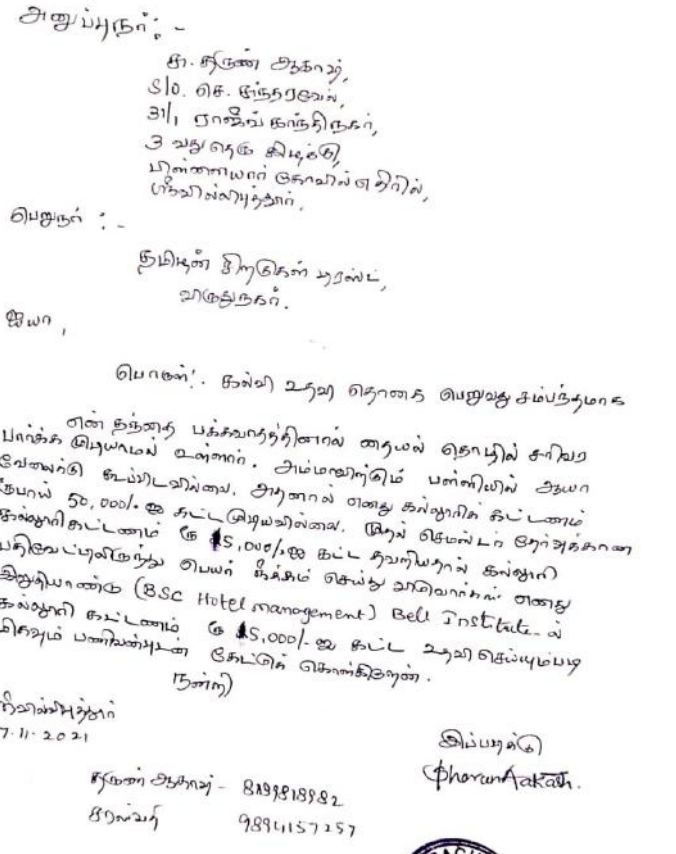 அனுப்புநர்:-
சு. தருண் ஆகாஷ்,
S/o. செ. சுந்தரவேல்,
31/1 ராஜீவ் காந்திநகர்,
3 வது தெரு கிழக்கு,
பிள்ளையார் கோவில் எதிரில்,
ஸ்ரீவில்லிபுத்தூர்.
பெறுநர் :-
தமிழன் சிறகுகள் டிரஸ்ட்,
விருதுநகர்.
ஐயா,
பொருள்:. கல்வி உதவி தொகை பெறுவது சம்பந்தமாக
என் தந்தை பக்கவாதத்தினால் தையல் தொழில் சரிவர
பார்க்க முடியாமல் உள்ளார். அம்மாவிற்கும் பள்ளியில் ஆயா
வேலைக்கு கூப்பிடவில்லை. அதனால் எனது கல்லூரிக் கட்டணம்
ரூபாய் 50,000/- ஐ கட்டமுடியவில்லை. முதல் செமஸ்டர் தேர்வுக்கான
கல்லூரி கட்டணம் ரூ 15,000/- ஐ கட்ட தவறியதால் கல்லூரி
பதிவேட்டிலிருந்து பெயர் நீக்கம் செய்து விடுவார்கள் எனது
இறுதியாண்டு (BSC Hotel management) Bell Institute-ல்
கல்லூரி கட்டணம் ரூ 15,000/- ஐ கட்ட உதவி செய்யும்படி
மிகவும் பணிவன்புடன் கேட்டுக் கொள்கிறேன்.
நன்றி
ஸ்ரீவில்லிபுத்தூர்
7.11.2021
இப்படிக்கு
DharunAakash.
தருண் ஆகாஷ் - 8499818982
சரஸ்வதி 9894157257